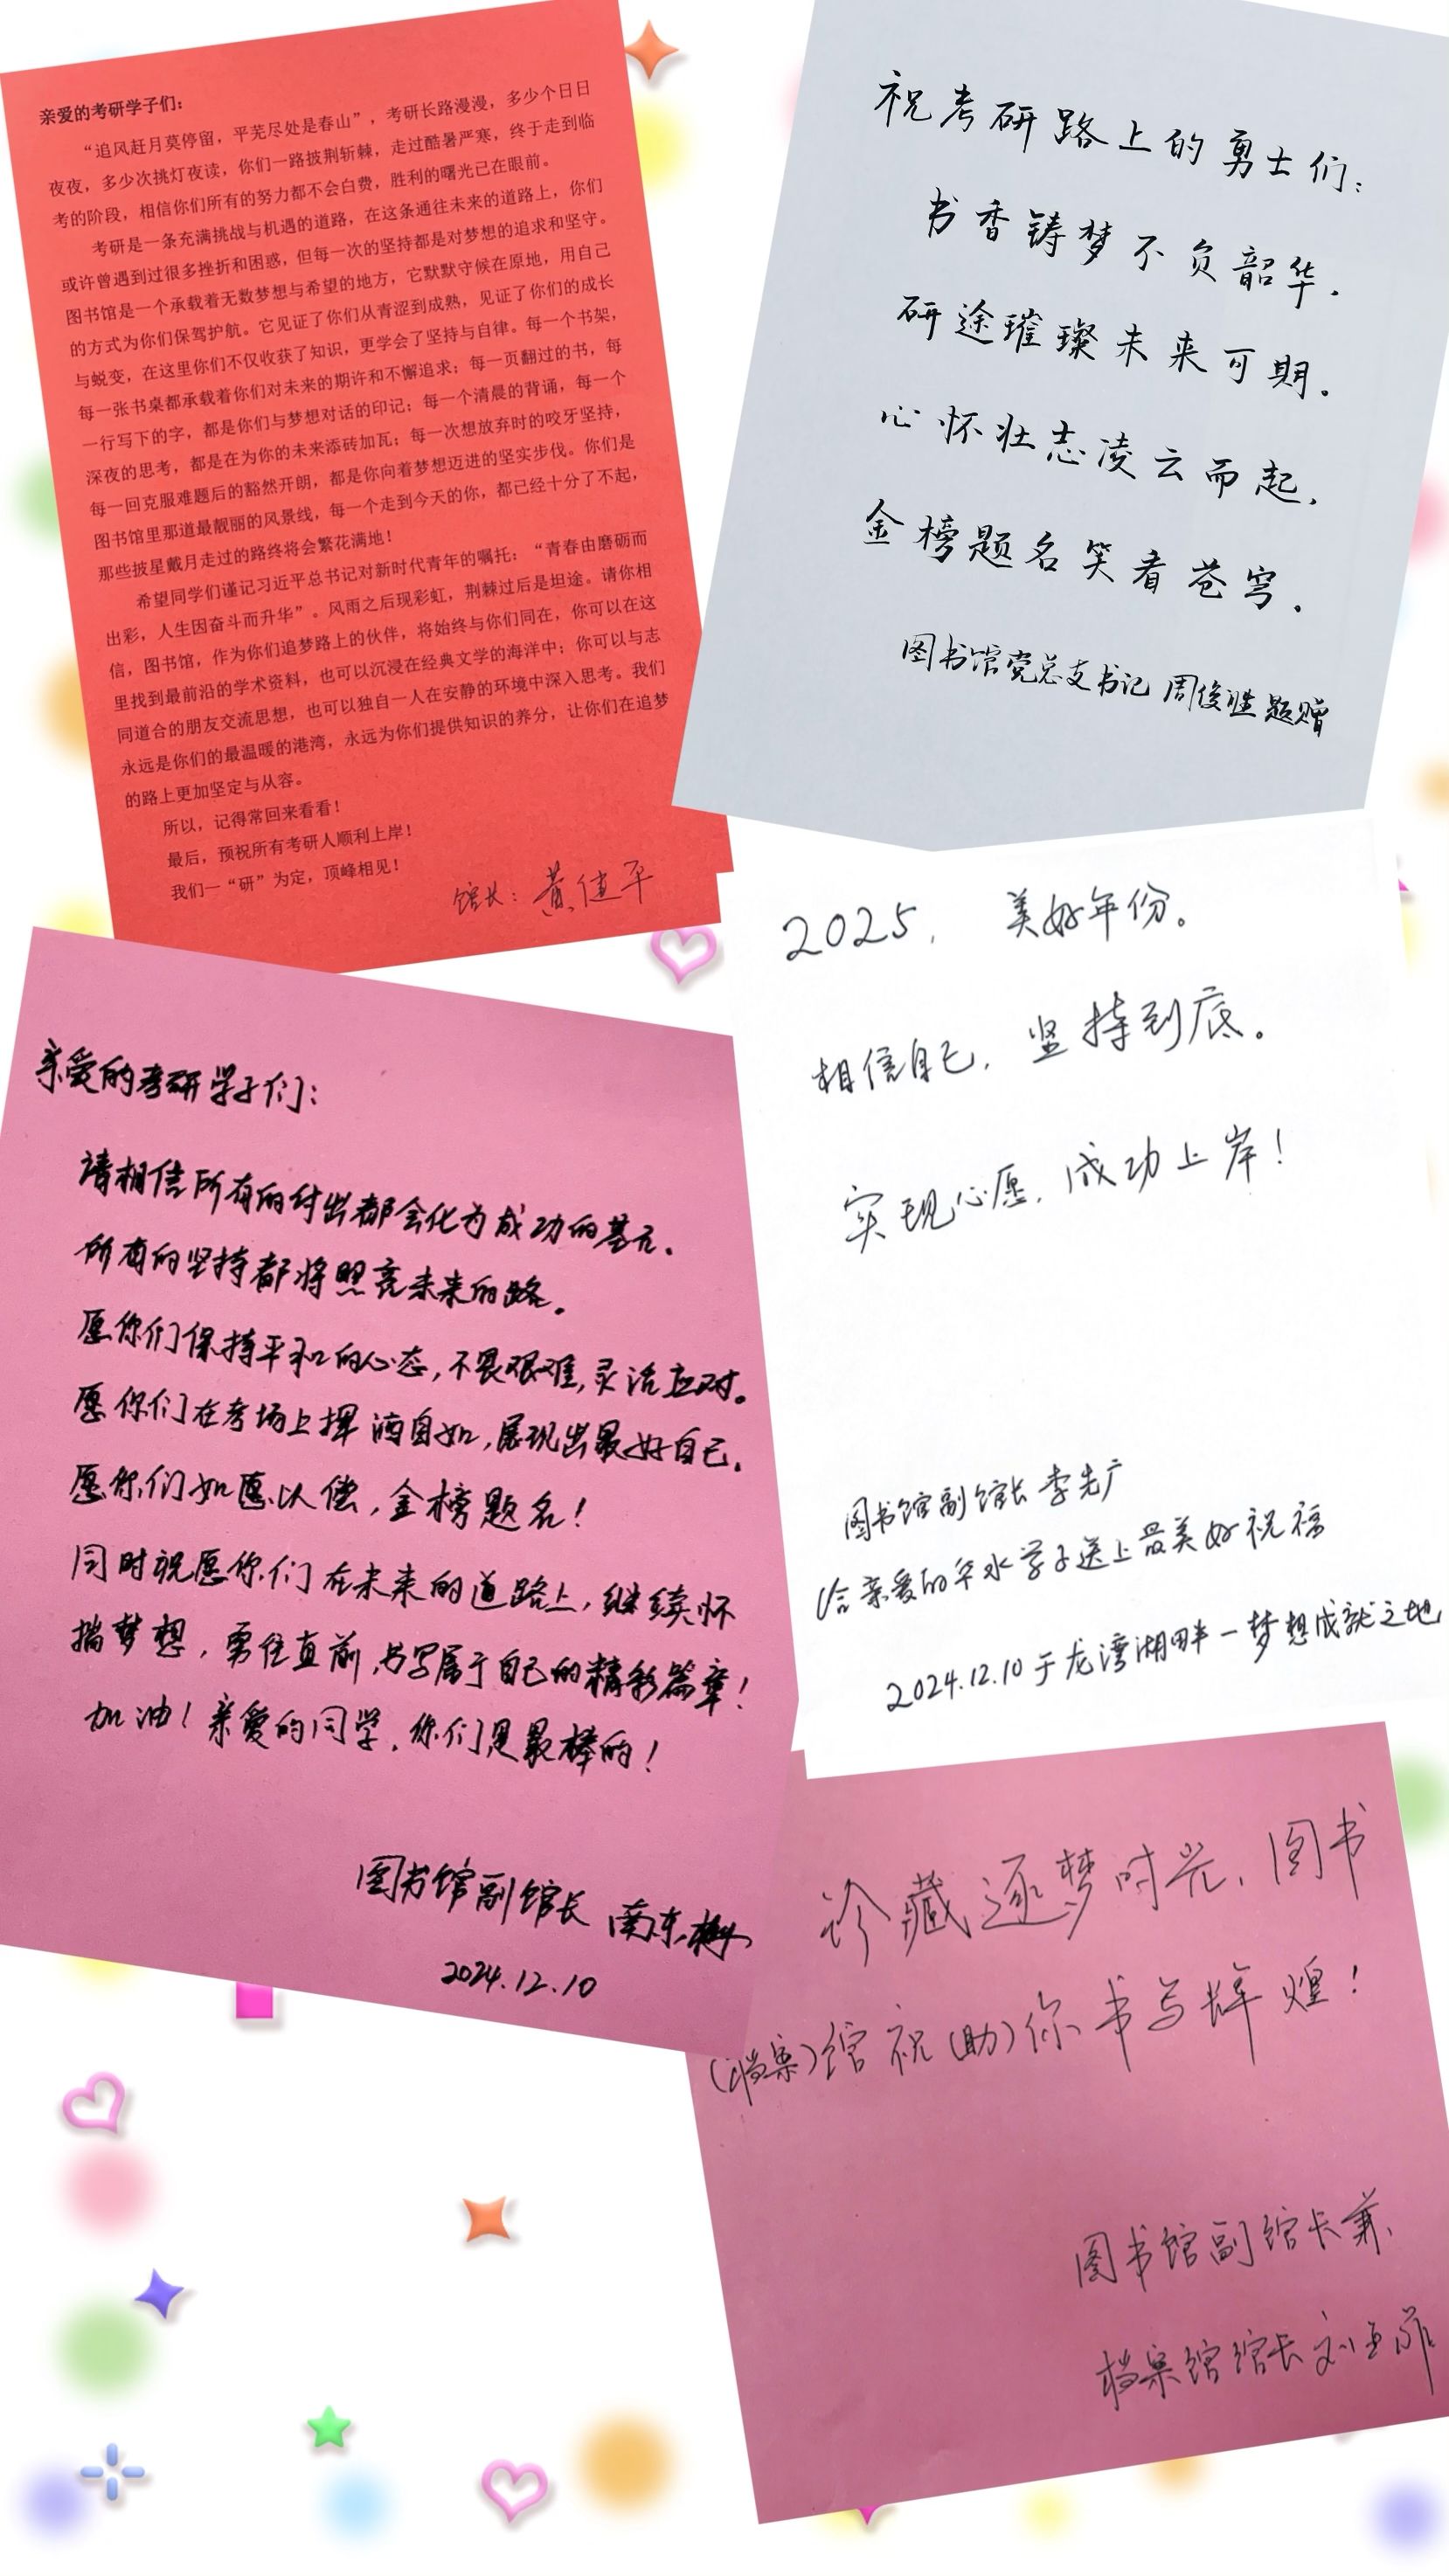 亲爱的考研学子们：
“追风赶月莫停留，平芜尽处是春山”，考研长路漫漫，多少个日日
夜夜，多少次挑灯夜读，你们一路披荆斩棘，走过酷暑严寒，终于走到临
考的阶段，相信你们所有的努力都不会白费，胜利的曙光已在眼前。
考研是一条充满挑战与机遇的道路，在这条通往未来的道路上，你们
或许曾遇到过很多挫折和困惑，但每一次的坚持都是对梦想的追求和坚守。
图书馆是一个承载着无数梦想与希望的地方，它默默守候在原地，用自己
的方式为你们保驾护航。它见证了你们从青涩到成熟，见证了你们的成长
与蜕变，在这里你们不仅收获了知识，更学会了坚持与自律。每一个书架，
每一张书桌都承载着你们对未来的期许和不懈追求；每一页翻过的书，每
一行写下的字，都是你们与梦想对话的印记；每一个清晨的背诵，每一个
深夜的思考，都是在为你的未来添砖加瓦；每一次想放弃时的咬牙坚持，
每一回克服难题后的豁然开朗，都是你向着梦想迈进的坚实步伐。你们是
图书馆里那道最靓丽的风景线，每一个走到今天的你，都已经十分了不起，
那些披星戴月走过的路终将会繁花满地！
希望同学们谨记习近平总书记对新时代青年的嘱托：“青春由磨砺而
出彩，人生因奋斗而升华”。风雨之后现彩虹，荆棘过后是坦途。请你相
信，图书馆，作为你们追梦路上的伙伴，将始终与你们同在，你可以在这
里找到最前沿的学术资料，也可以沉浸在经典文学的海洋中；你可以与志
同道合的朋友交流思想，也可以独自一人在安静的环境中深入思考。我们
永远是你们的最温暖的港湾，永远为你们提供知识的养分，让你们在追梦
的路上更加坚定与从容。
所以，记得常回来看看！
最后，预祝所有考研人顺利上岸！
我们一“研”为定，顶峰相见！
馆长：黄健平
祝考研路上的勇士们：
书香铸梦不负韶华.
研途璀璨未来可期.
心怀壮志凌云而起,
金榜题名笑看苍穹.
图书馆党总支书记 周俊胜题赠
2025, 美好年份。
相信自己, 坚持到底。
实现心愿, 成功上岸!
图书馆副馆长 李先广
给亲爱的华水学子送上最美好祝福
2024.12.10于龙湾湖畔一梦想成就之地
亲爱的考研学子们：
请相信所有的付出都会化为成功的基石.
所有的坚持都将照亮未来的路。
愿你们保持平和的心态, 不畏艰难, 灵活应对。
愿你们在考场上挥洒自如, 展现出最好自己.
愿你们如愿以偿, 金榜题名!
同时祝愿你们在未来的道路上, 继续怀
揣梦想, 勇往直前, 书写属于自己的精彩篇章!
加油! 亲爱的同学, 你们是最棒的!
图书馆副馆长 南东
2024.12.10
珍藏逐梦时光, 图书
(档案)馆祝(助)你书写辉煌!
图书馆副馆长兼、
档案馆馆长刘